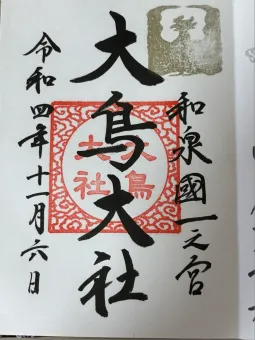 和泉國一之宮
大鳥大社
大鳥大社
令和四年十一月六日